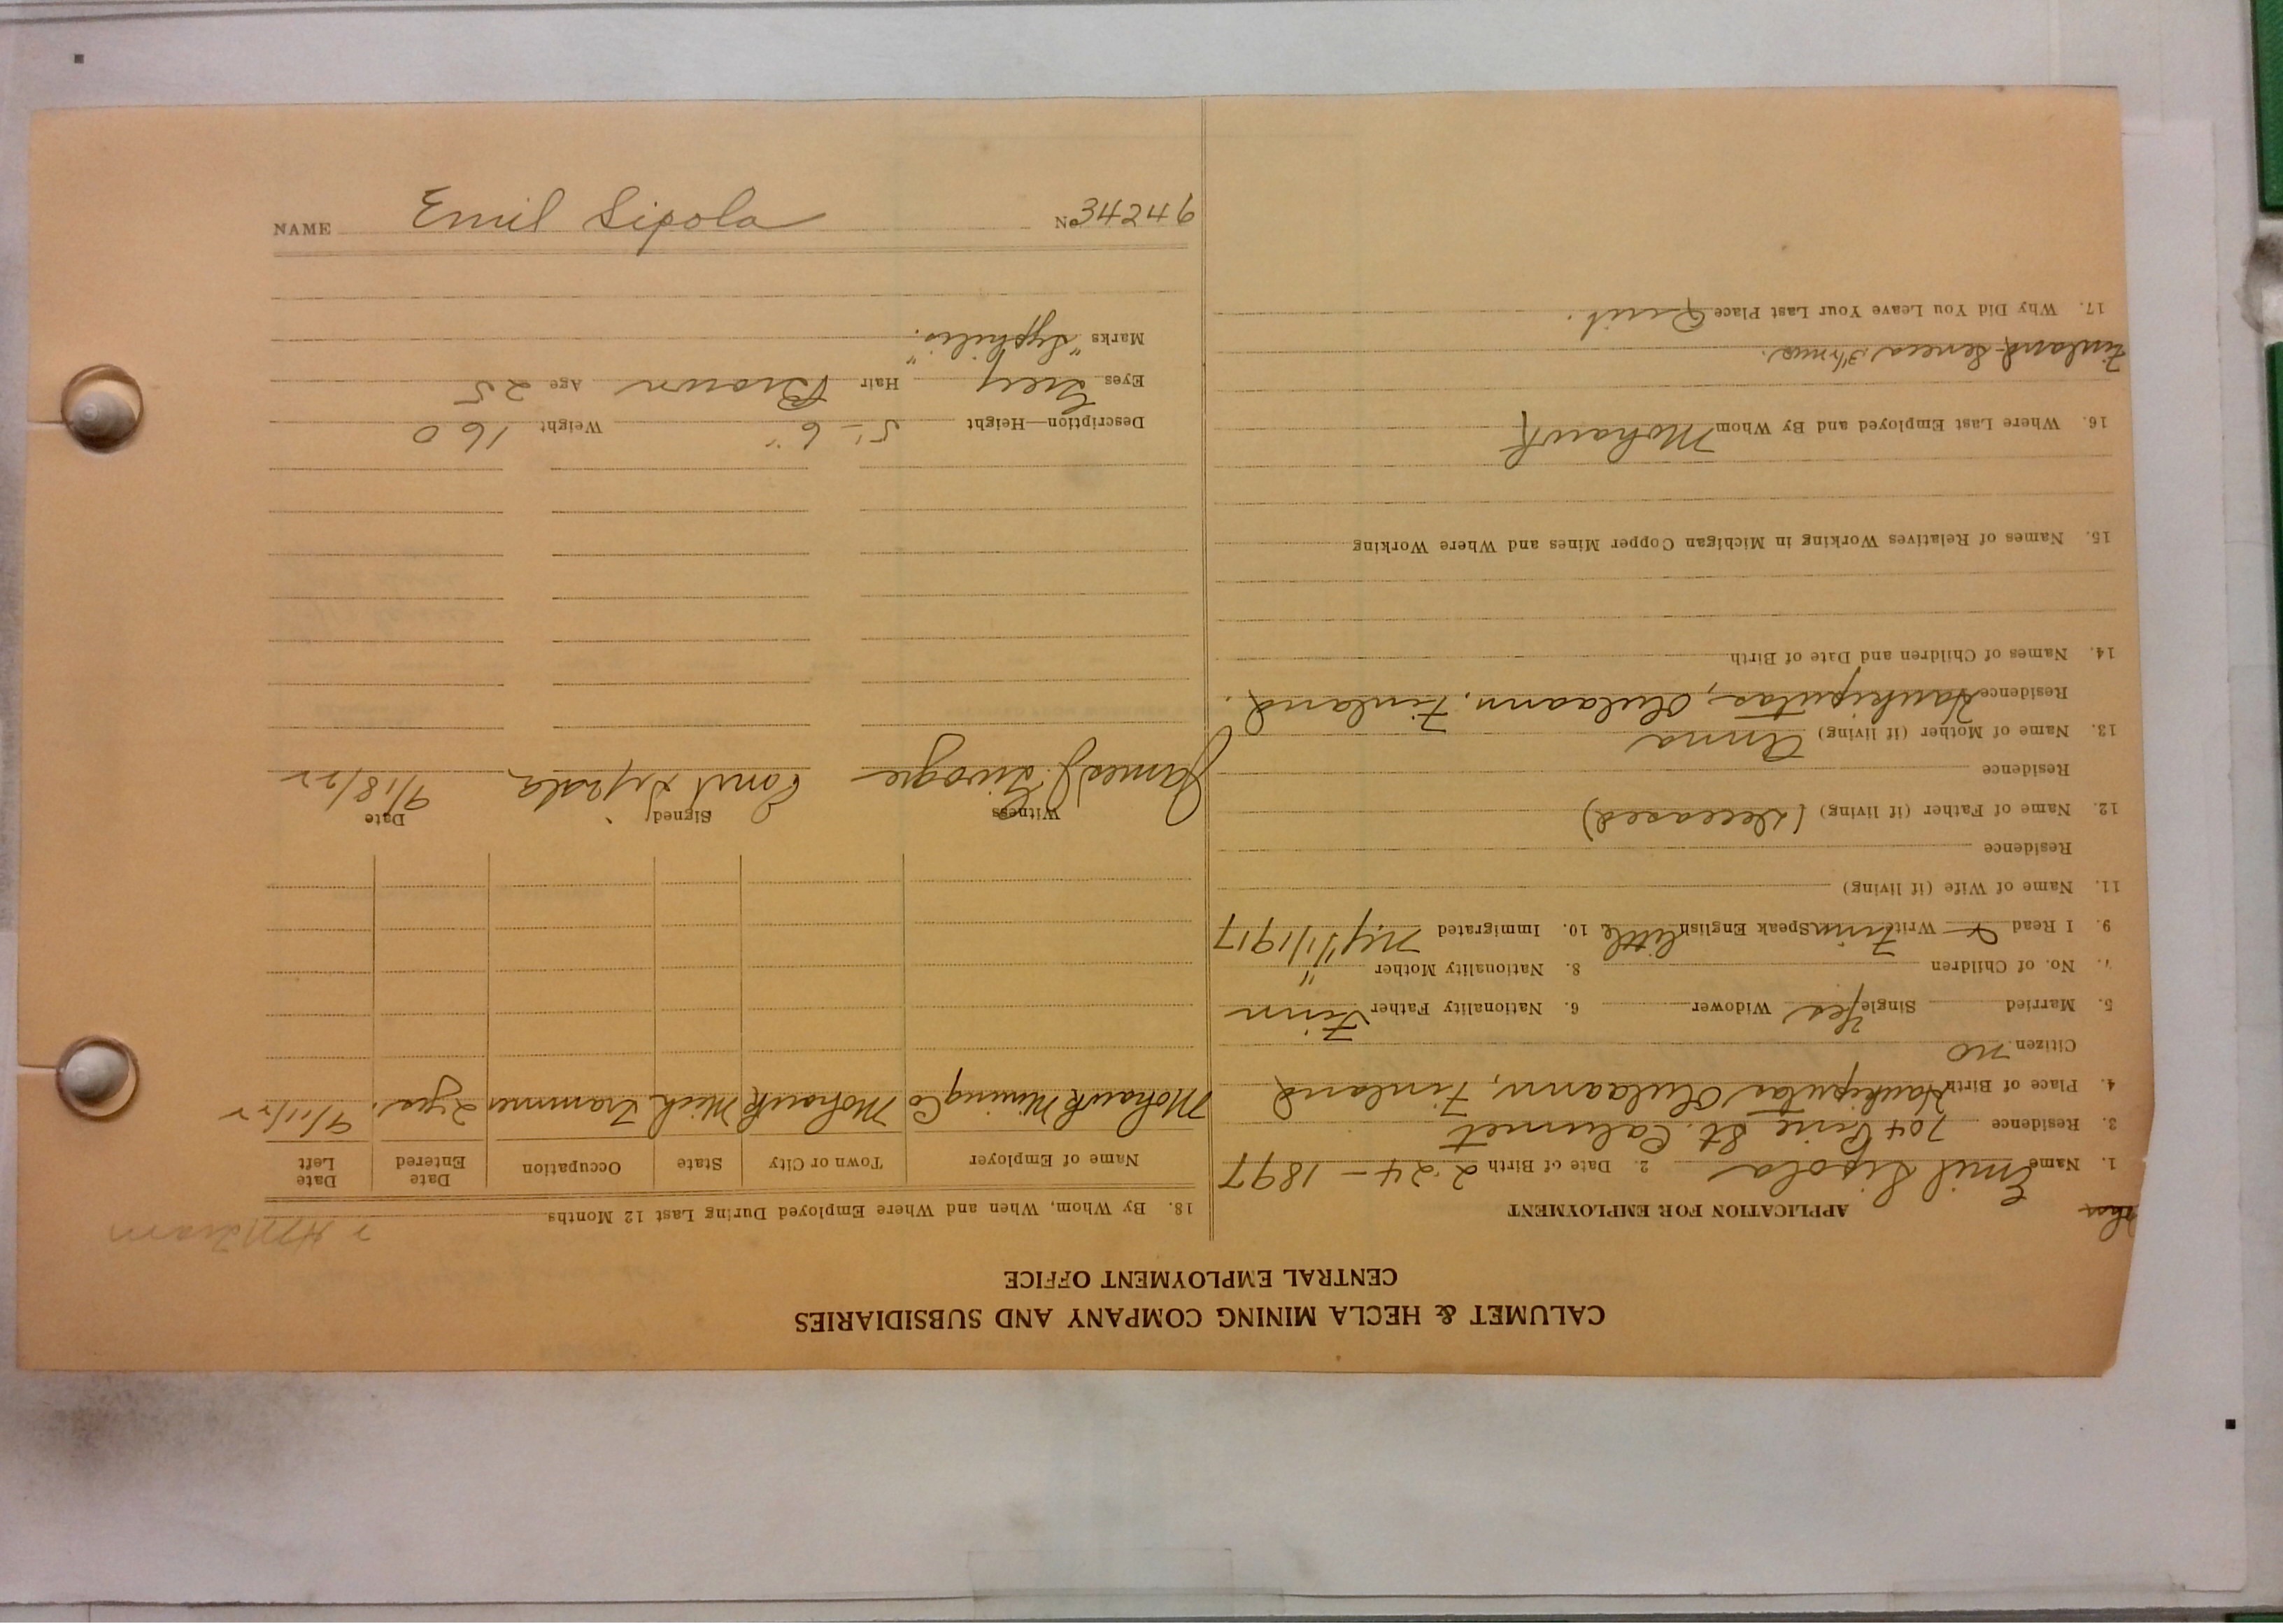 CALUMET & HECLA MINING COMPANY AND SUBSIDIARIES
CENTRAL EMPLOYMENT OFFICE
APPLICATION FOR EMPLOYMENT
1. Name Emil Sipola 2. Date of Birth 2-24-1897
3. Residence 704 Pine St. Calumet
4. Place of Birth Haukiputas, Oulaann, Finland
Citizen no
5. Married Single Yes Widower 6. Nationality Father Finn
7. No. of Children 8. Nationality Mother "
9. I Read & Write Finn Speak English little 10. Immigrated N.Y. 1/1/1917
11. Name of Wife (if living)
Residence
12. Name of Father (if living) (deceased)
Residence
13. Name of Mother (if living) Anna
Residence Haukiputas, Oulaann, Finland.
14. Names of Children and Date of Birth
15. Names of Relatives Working in Michigan Copper Mines and Where Working
16. Where Last Employed and By Whom Mohawk
Finland-Seneca 3½ mos.
17. Why Did You Leave Your Last Place Quit.
18. By Whom, When and Where Employed During Last 12 Months
Name of Employer Town or City State Occupation Date Entered Date Left
Mohawk Mining Co Mohawk Mich Trammer 2 yrs. 9/11/22
Witness Signed Date
James J. Emil Sipola 9/18/22
Description—Height 5'-6" Weight 160
Eyes Grey Hair Brown Age 25
Marks "Syphilis."
NAME Emil Sipola No 34246